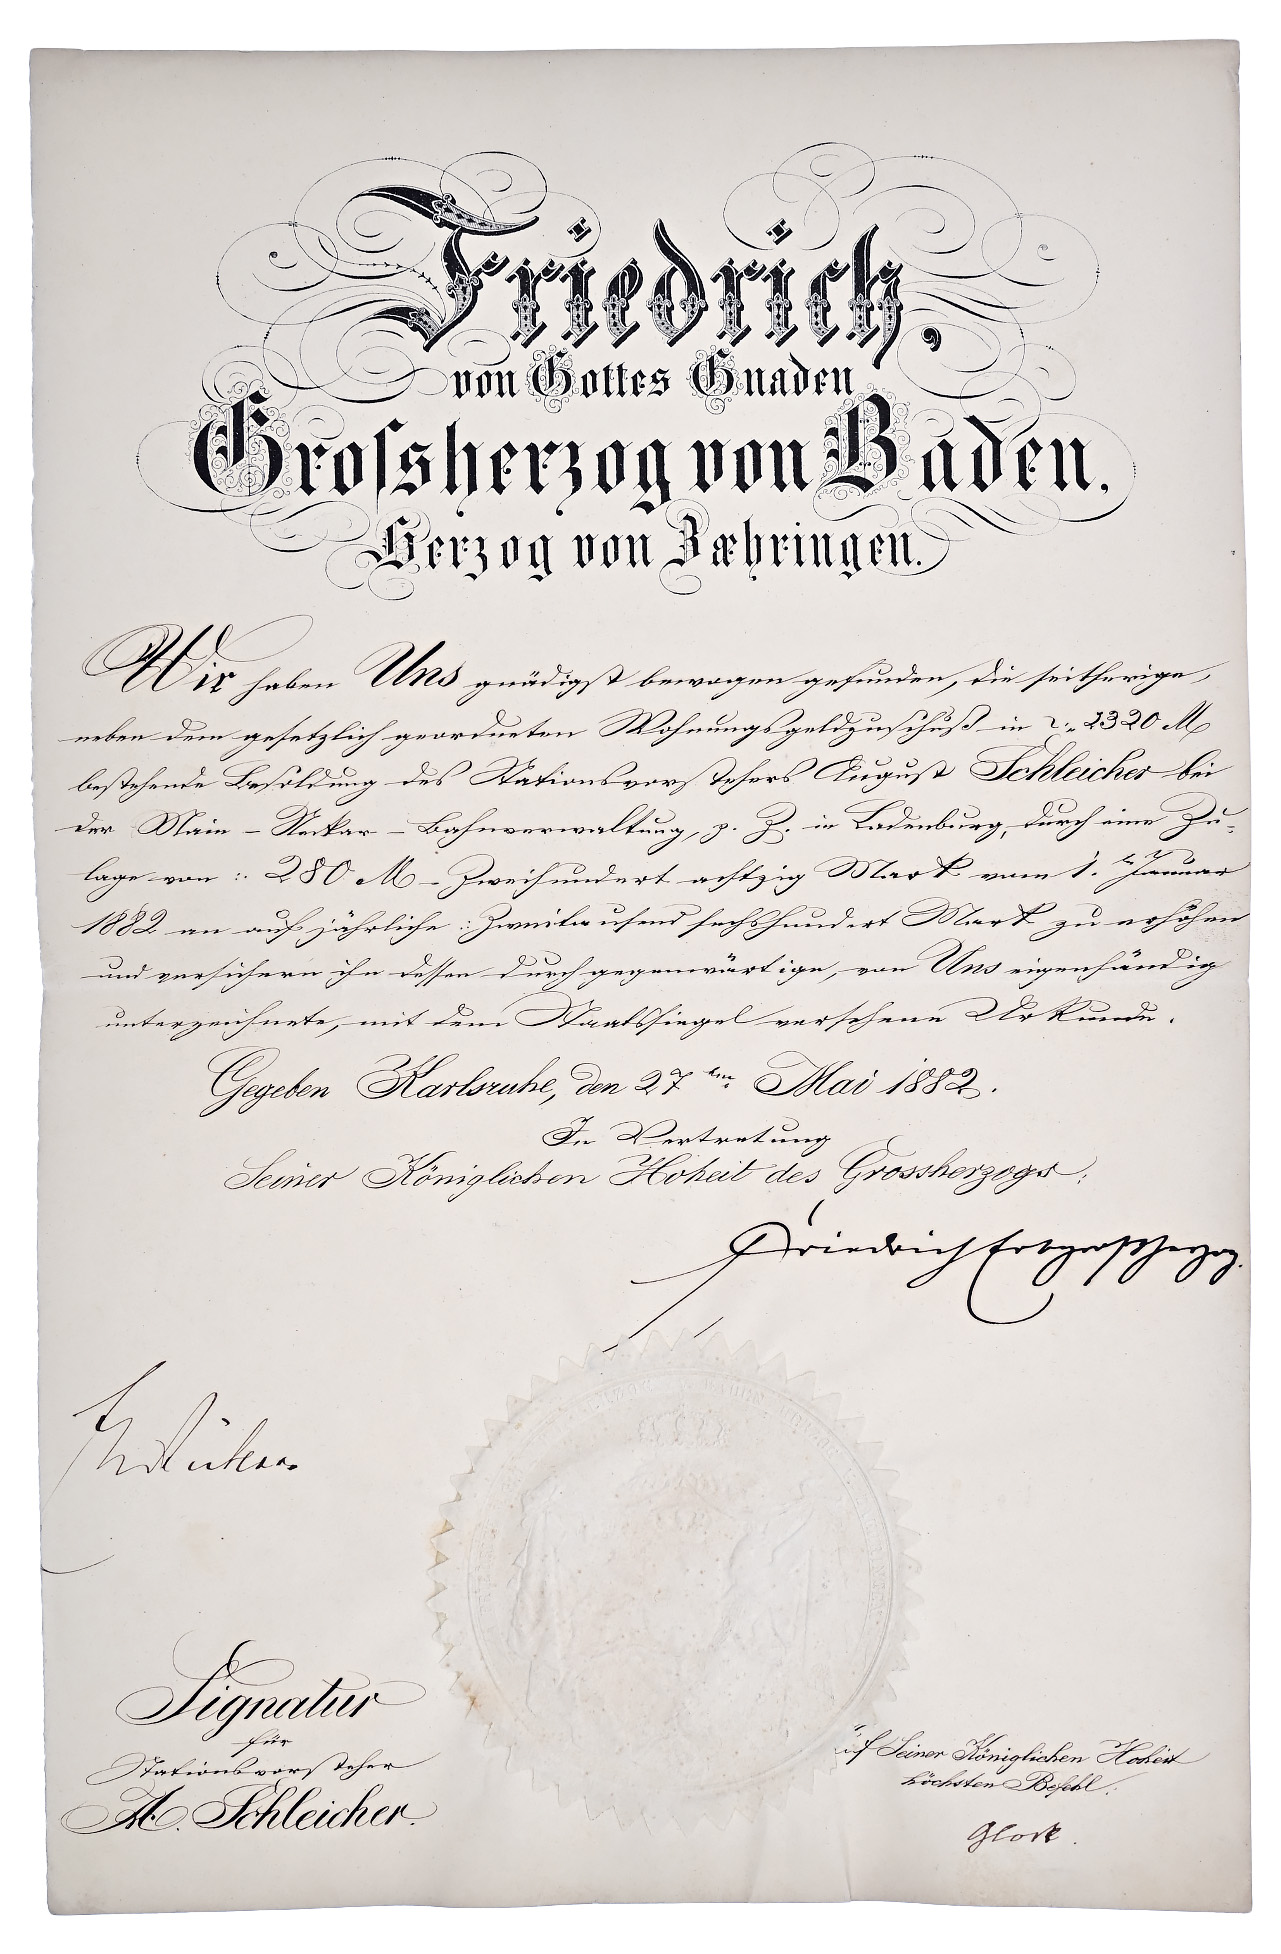 Friedrich,
von Gottes Gnaden
Grosſsherzog von Baden,
Herzog von Zæhringen.
Wir haben Uns gnädigst bewogen gefunden, die seitherige,
neben dem gesetzlich geordneten Wohnungsgeldzuschuß in 2320 M
bestehende Besoldung des Stationsvorstehers August Schleicher bei
der Main-Neckar-Bahnverwaltung, z. Z. in Ladenburg, durch eine Zu-
lage von :. 280 M - Zweihundert achtzig Mark vom 1. ten Januar
1882 an auf jährliche : Zweitausend sechshundert Mark zu erhöhen
und versichern ihn dessen durch gegenwärtige, von Uns eigenhändig
unterzeichnete, mit dem Staatssiegel versehene Urkunde.
Gegeben Karlsruhe, den 27 ten Mai 1882.
In Vertretung
Seiner Königlichen Hoheit des Grossherzogs:
Friedrich Erbgroßherzog.
Signatur
für
Stationsvorsteher
A. Schleicher.
Seiner Königlichen Hoheit
höchsten Befehl:
Glock.